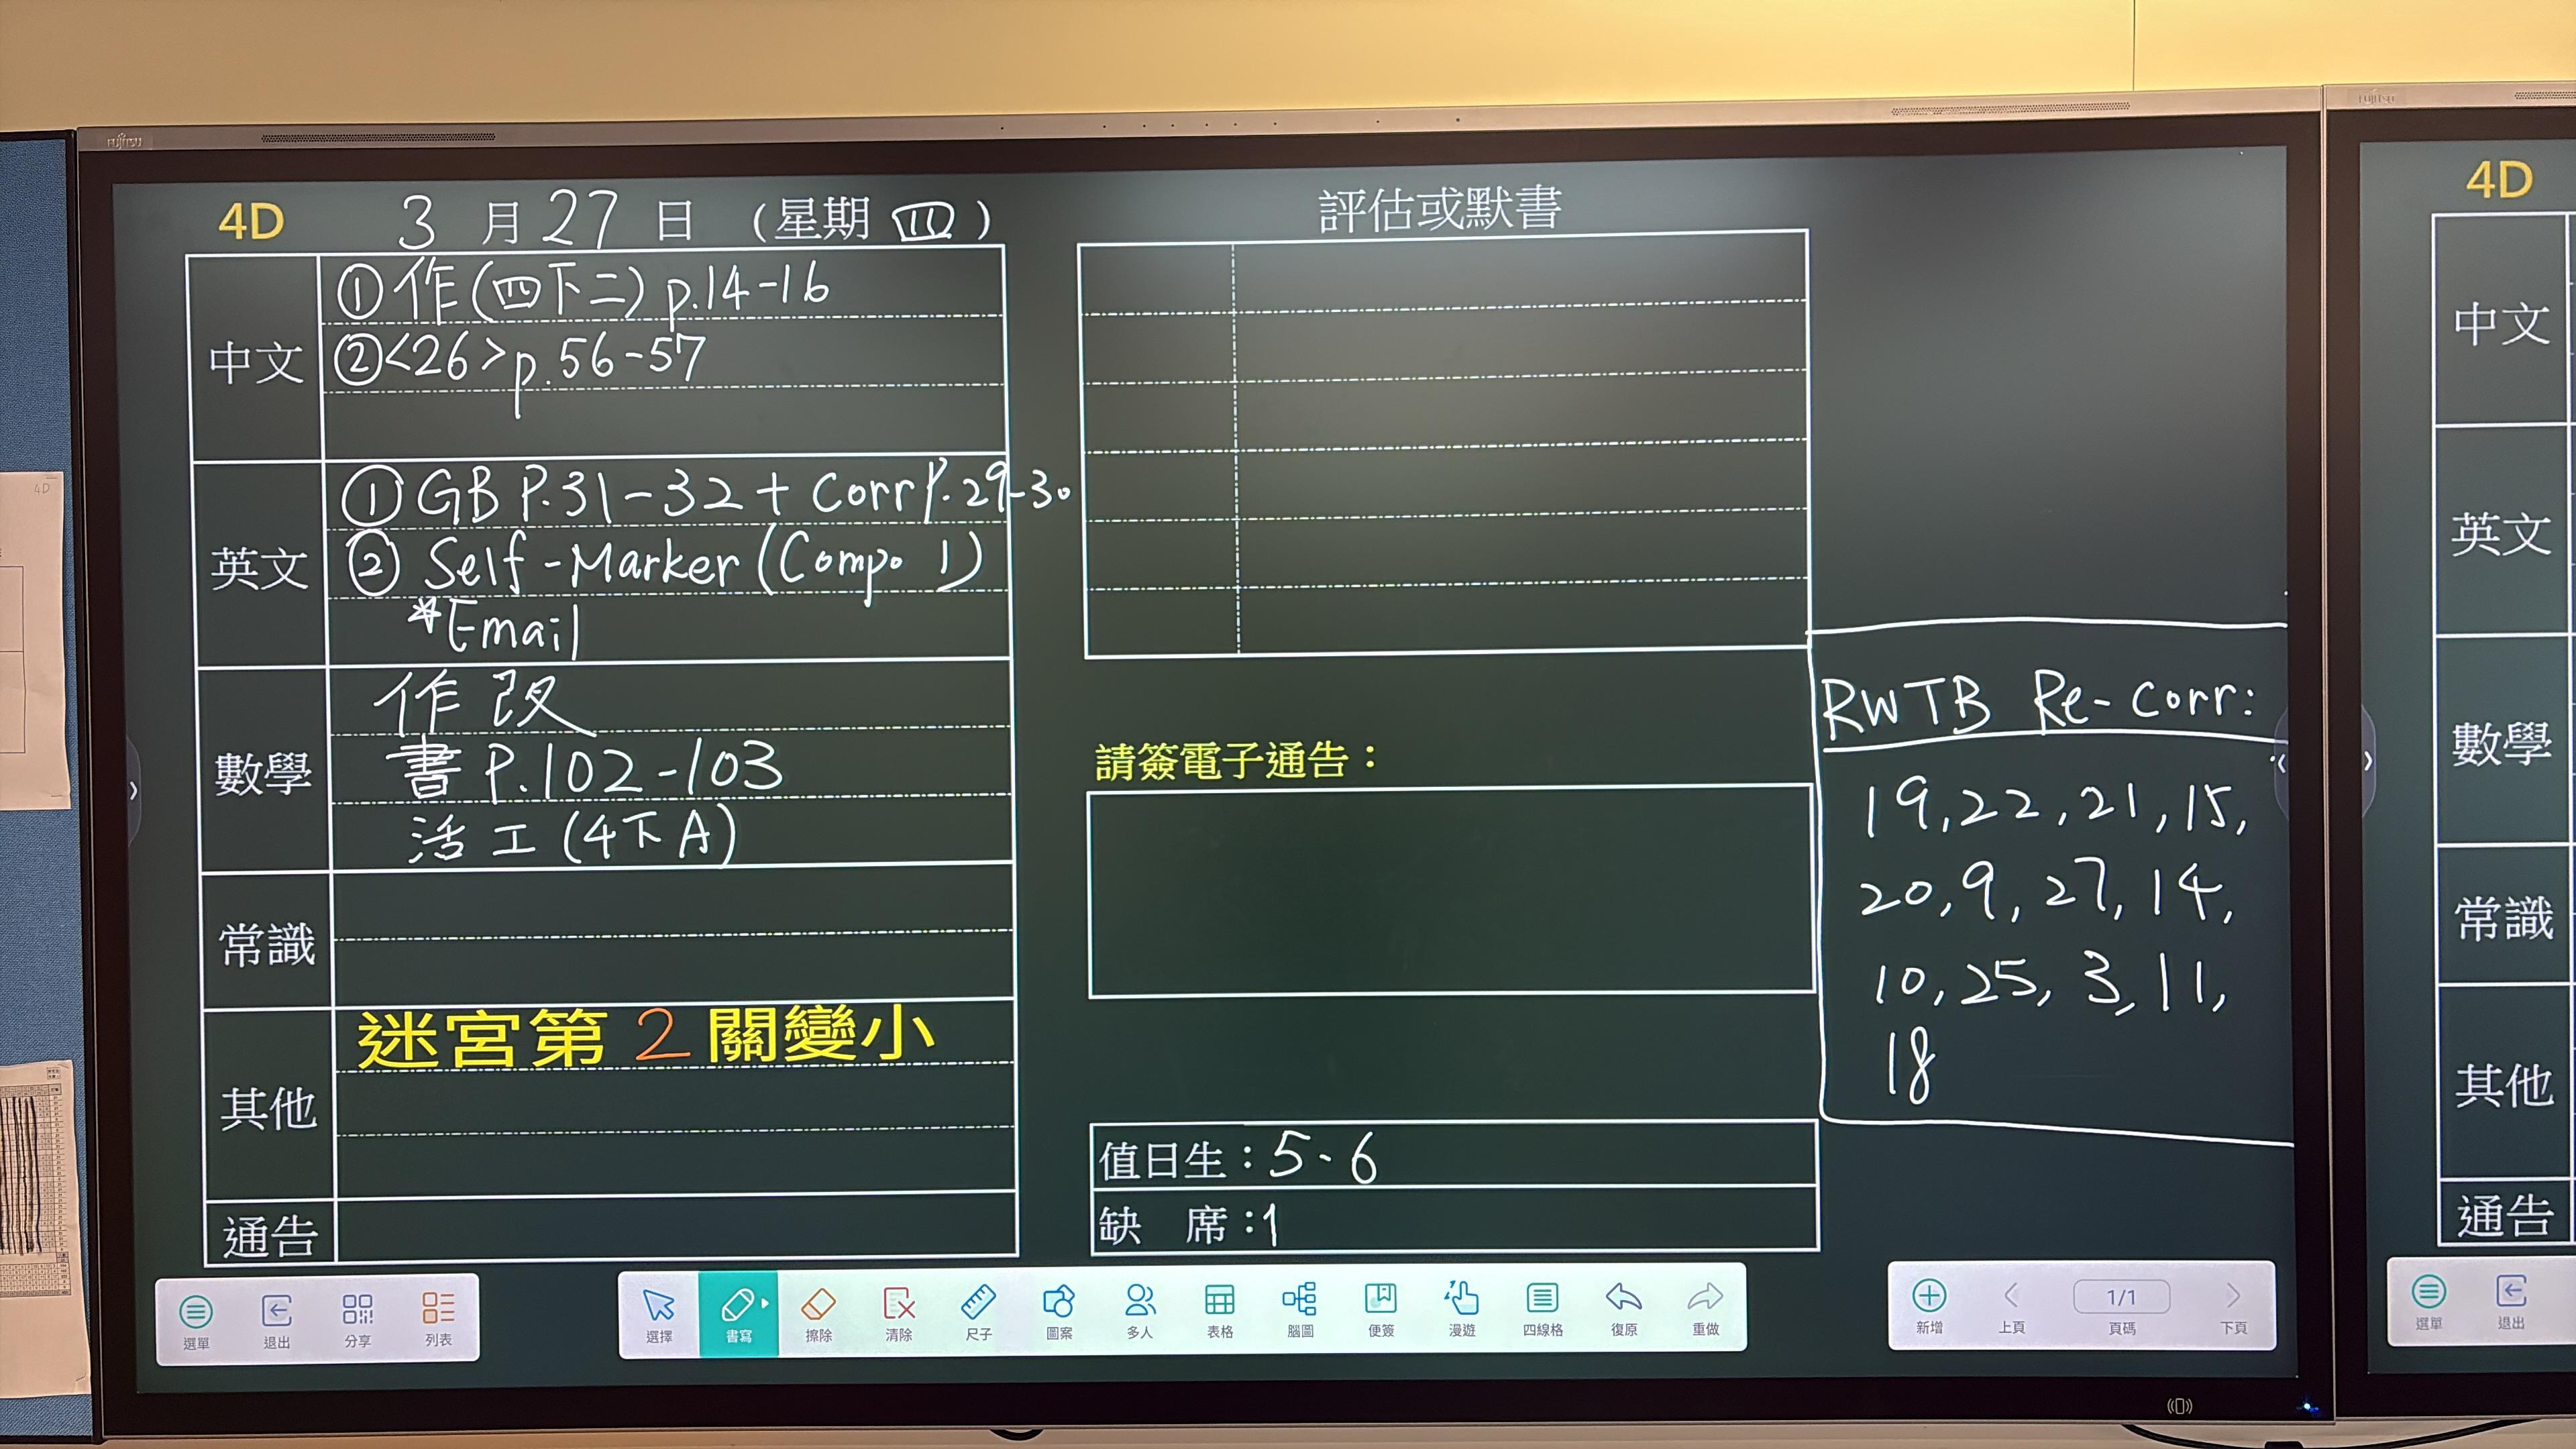 FUJITSU
FUJITSU
4D 3月27日 (星期四)
中文
①作(四下二) p.14-16
②<26>p.56-57
英文
① GB P.31-32 + Corr P.29-30
② Self-Marker (Compo 1)
*Email
數學
作改
書 P.102-103
活工(4下A)
常識
其他
迷宮第2關變小
通告
評估或默書
請簽電子通告：
值日生：5、6
缺 席：1
RWTB Re-Corr:
19, 22, 21, 15,
20, 9, 27, 14,
10, 25, 3, 11,
18
選單 退出 分享 列表
選擇 書寫 擦除 清除 尺子 圖案 多人 表格 腦圖 便簽 漫遊 四線格 復原 重做
新增 上頁 1/1 頁碼 下頁
4D
中文
英文
數學
常識
其他
通告
選單 退出
4D